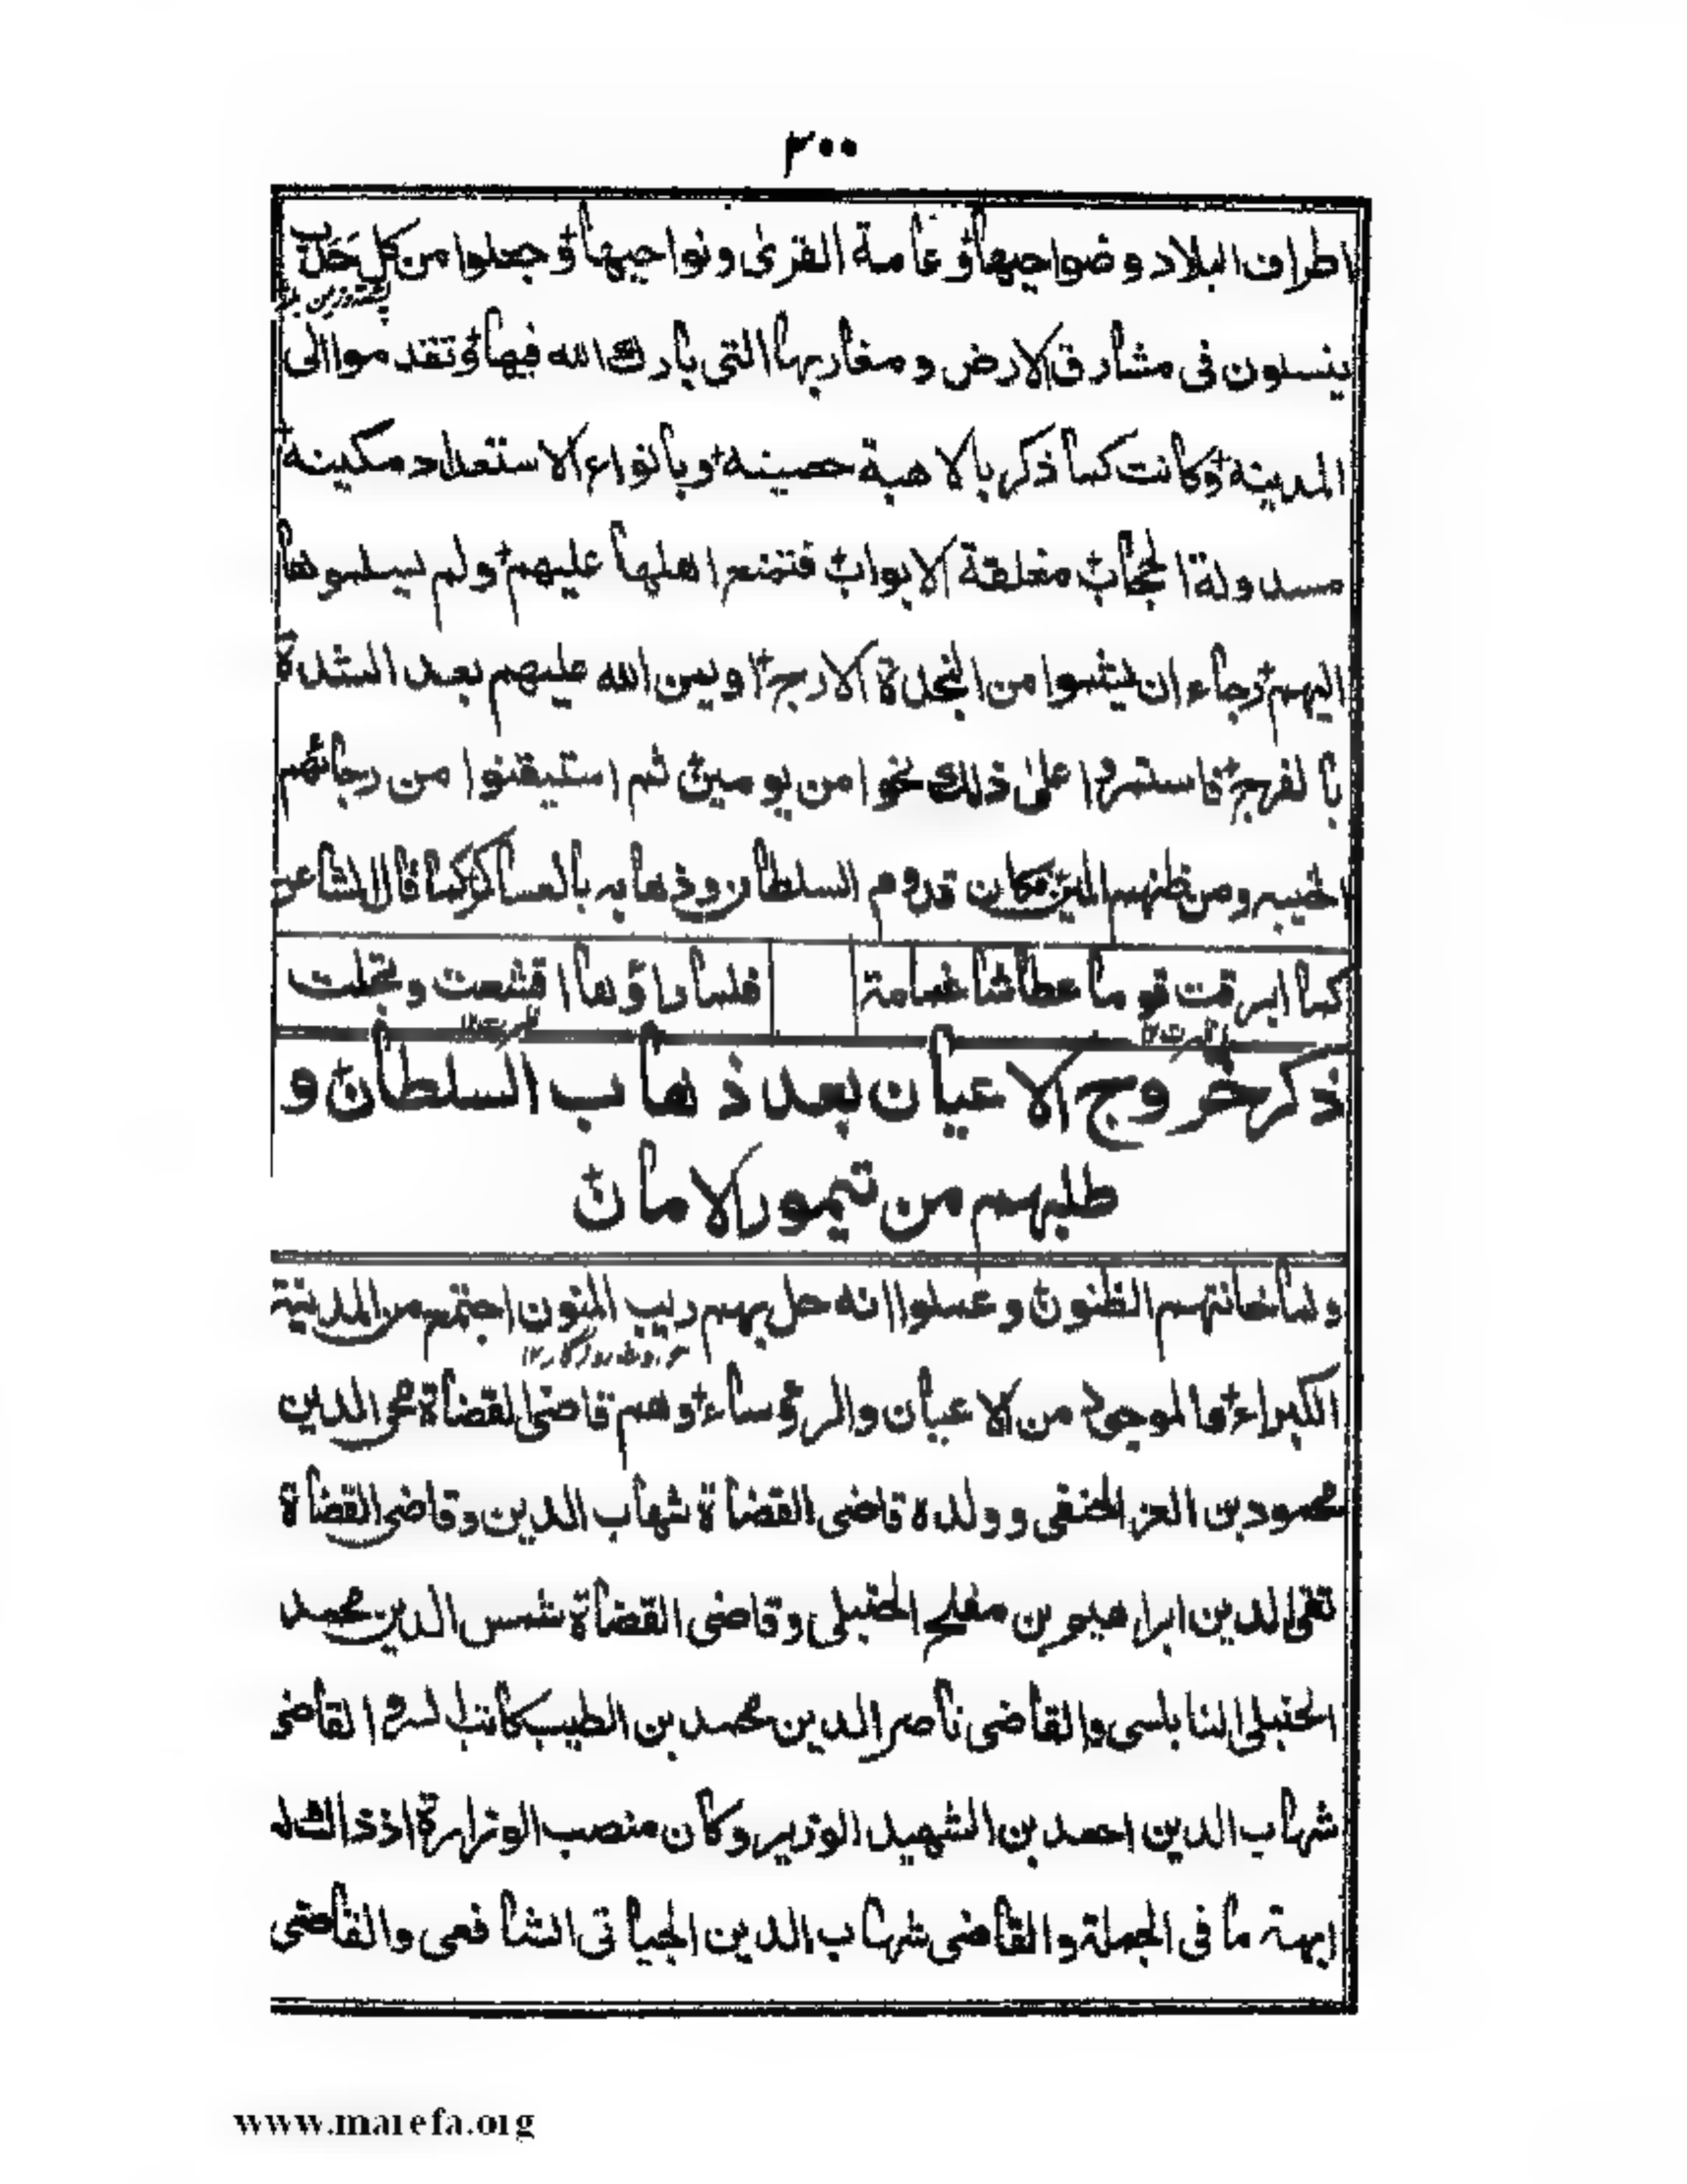 ٣٠٠
اطراف البلاد وضواحيها وعامة القرى ونواحيها وجعلوا من كل حدب
ينسلون فى مشارق الارض ومغاربها التى بارك الله فيها وتقدموا الى
المدينه وكانت كما ذكر بالاهبة حصينه وبانواع الاستعداد مكينه
مسدولة الحجاب مغلقة الابواب فتمنع اهلها عليهم ولم يسلموها
اليهم رجاء ان يشموا من النجدة الارج او يمن الله عليهم بعد الشدة
بالفرج فاستمروا على ذلك نحوا من يومين ثم استيقنوا من رجائهم
الخيبه ومن ظنهم المين فكان قدوم السلطان وذهابه بالعساكر كما قال الشاعر
كما ابرقت قوما عطاشا غمامة فلما راؤها اقشعت وتجلت
ذكر خروج الاعيان بعد ذهاب السلطان و
طلبهم من تيمور الامان
ولما خانتهم الظنون وعملوا انه حل بهم ريب المنون اجتمع من المدينة
الكبراء والموجود من الاعيان والرؤساء وهم قاضى القضاة محى الدين
محمود بن العز الحنفى وولده قاضى القضاة شهاب الدين وقاضى القضاة
تقى الدين ابراهيم بن مفلح الحنبلى وقاضى القضاة شمس الدين محمد
الحنبلى النابلسى والقاضى ناصر الدين محمد بن الطيب كاتب السر والقاضى
شهاب الدين احمد بن الشهيد الوزير وكان منصب الوزارة اذ ذاك له
ابهة ما فى الجملة والقاضى شهاب الدين الجيانى الشافعى والقاضى
www.marefa.org